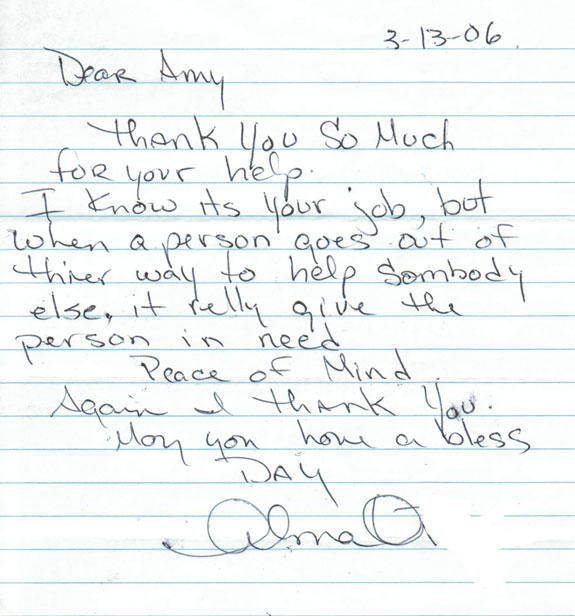 3-13-06.
Dear Amy
Thank You So Much
for your help.
I Know its Your job, but
when a person goes out of
thier way to help Sombody
else, it relly give the
person in need
Peace of Mind.
Again I thank You.
May you have a bless
DAY
Alma